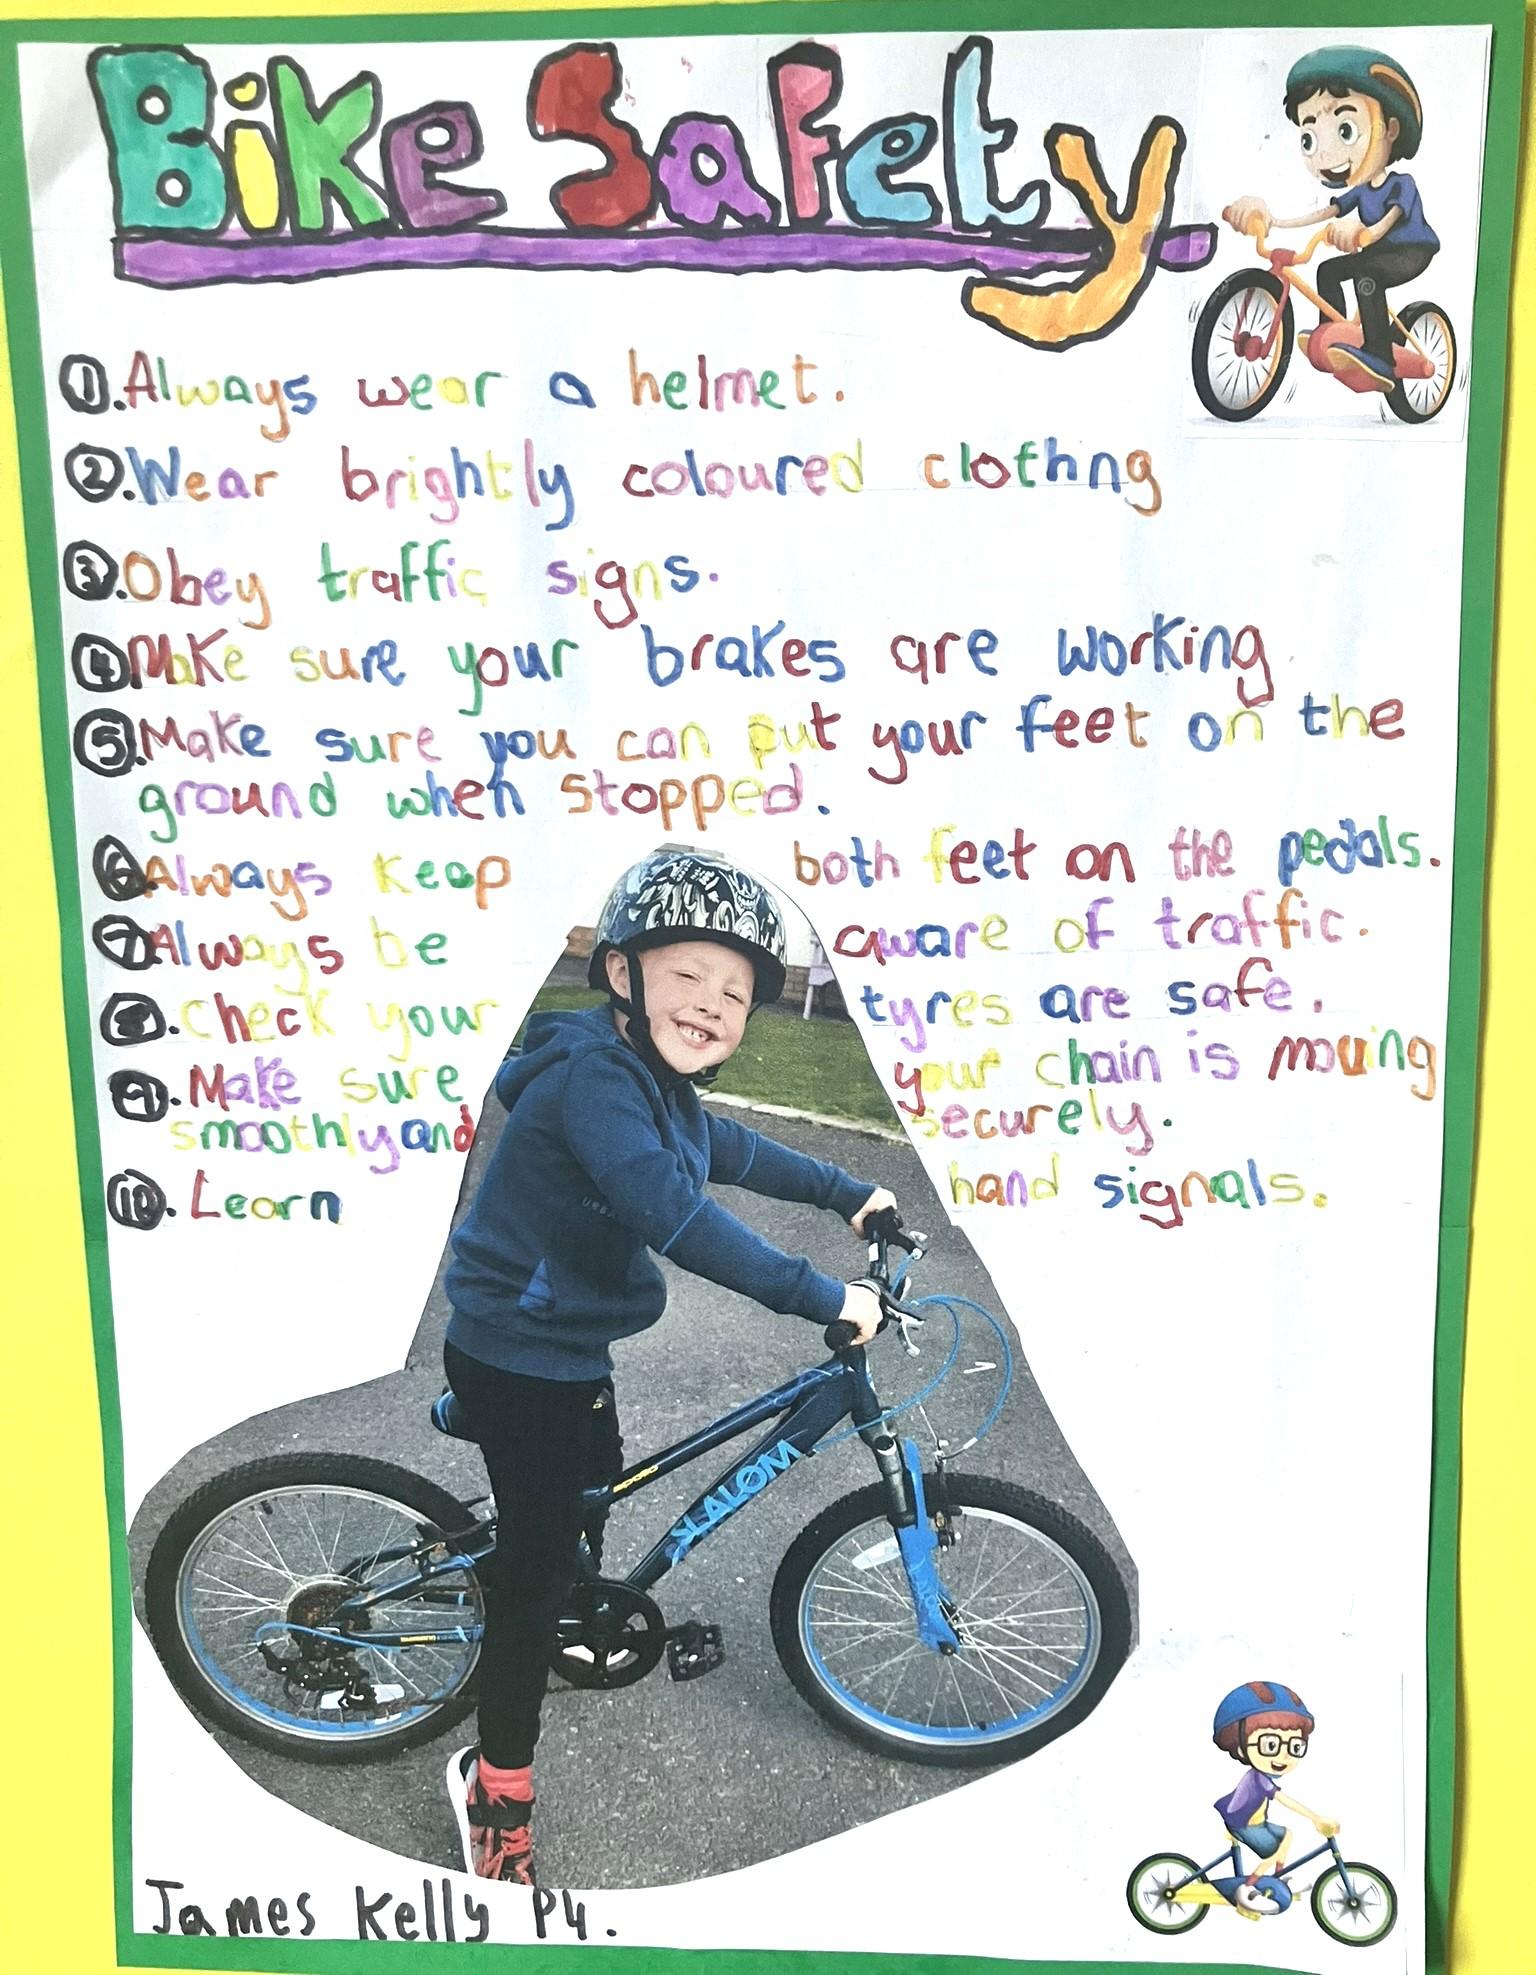 Bike Safety.
1. Always wear a helmet.
2. Wear brightly coloured clothng
3. Obey traffic signs.
4 Make sure your brakes are working
5. Make sure you can put your feet on the
ground when stopped.
6. Always keep both feet on the pedals.
7 Always be aware of traffic.
8. Check your tyres are safe.
9. Make sure your chain is moving
smoothly and securely.
10. Learn hand signals.
apollo
SLALOM
SHIMANO
James Kelly P4.